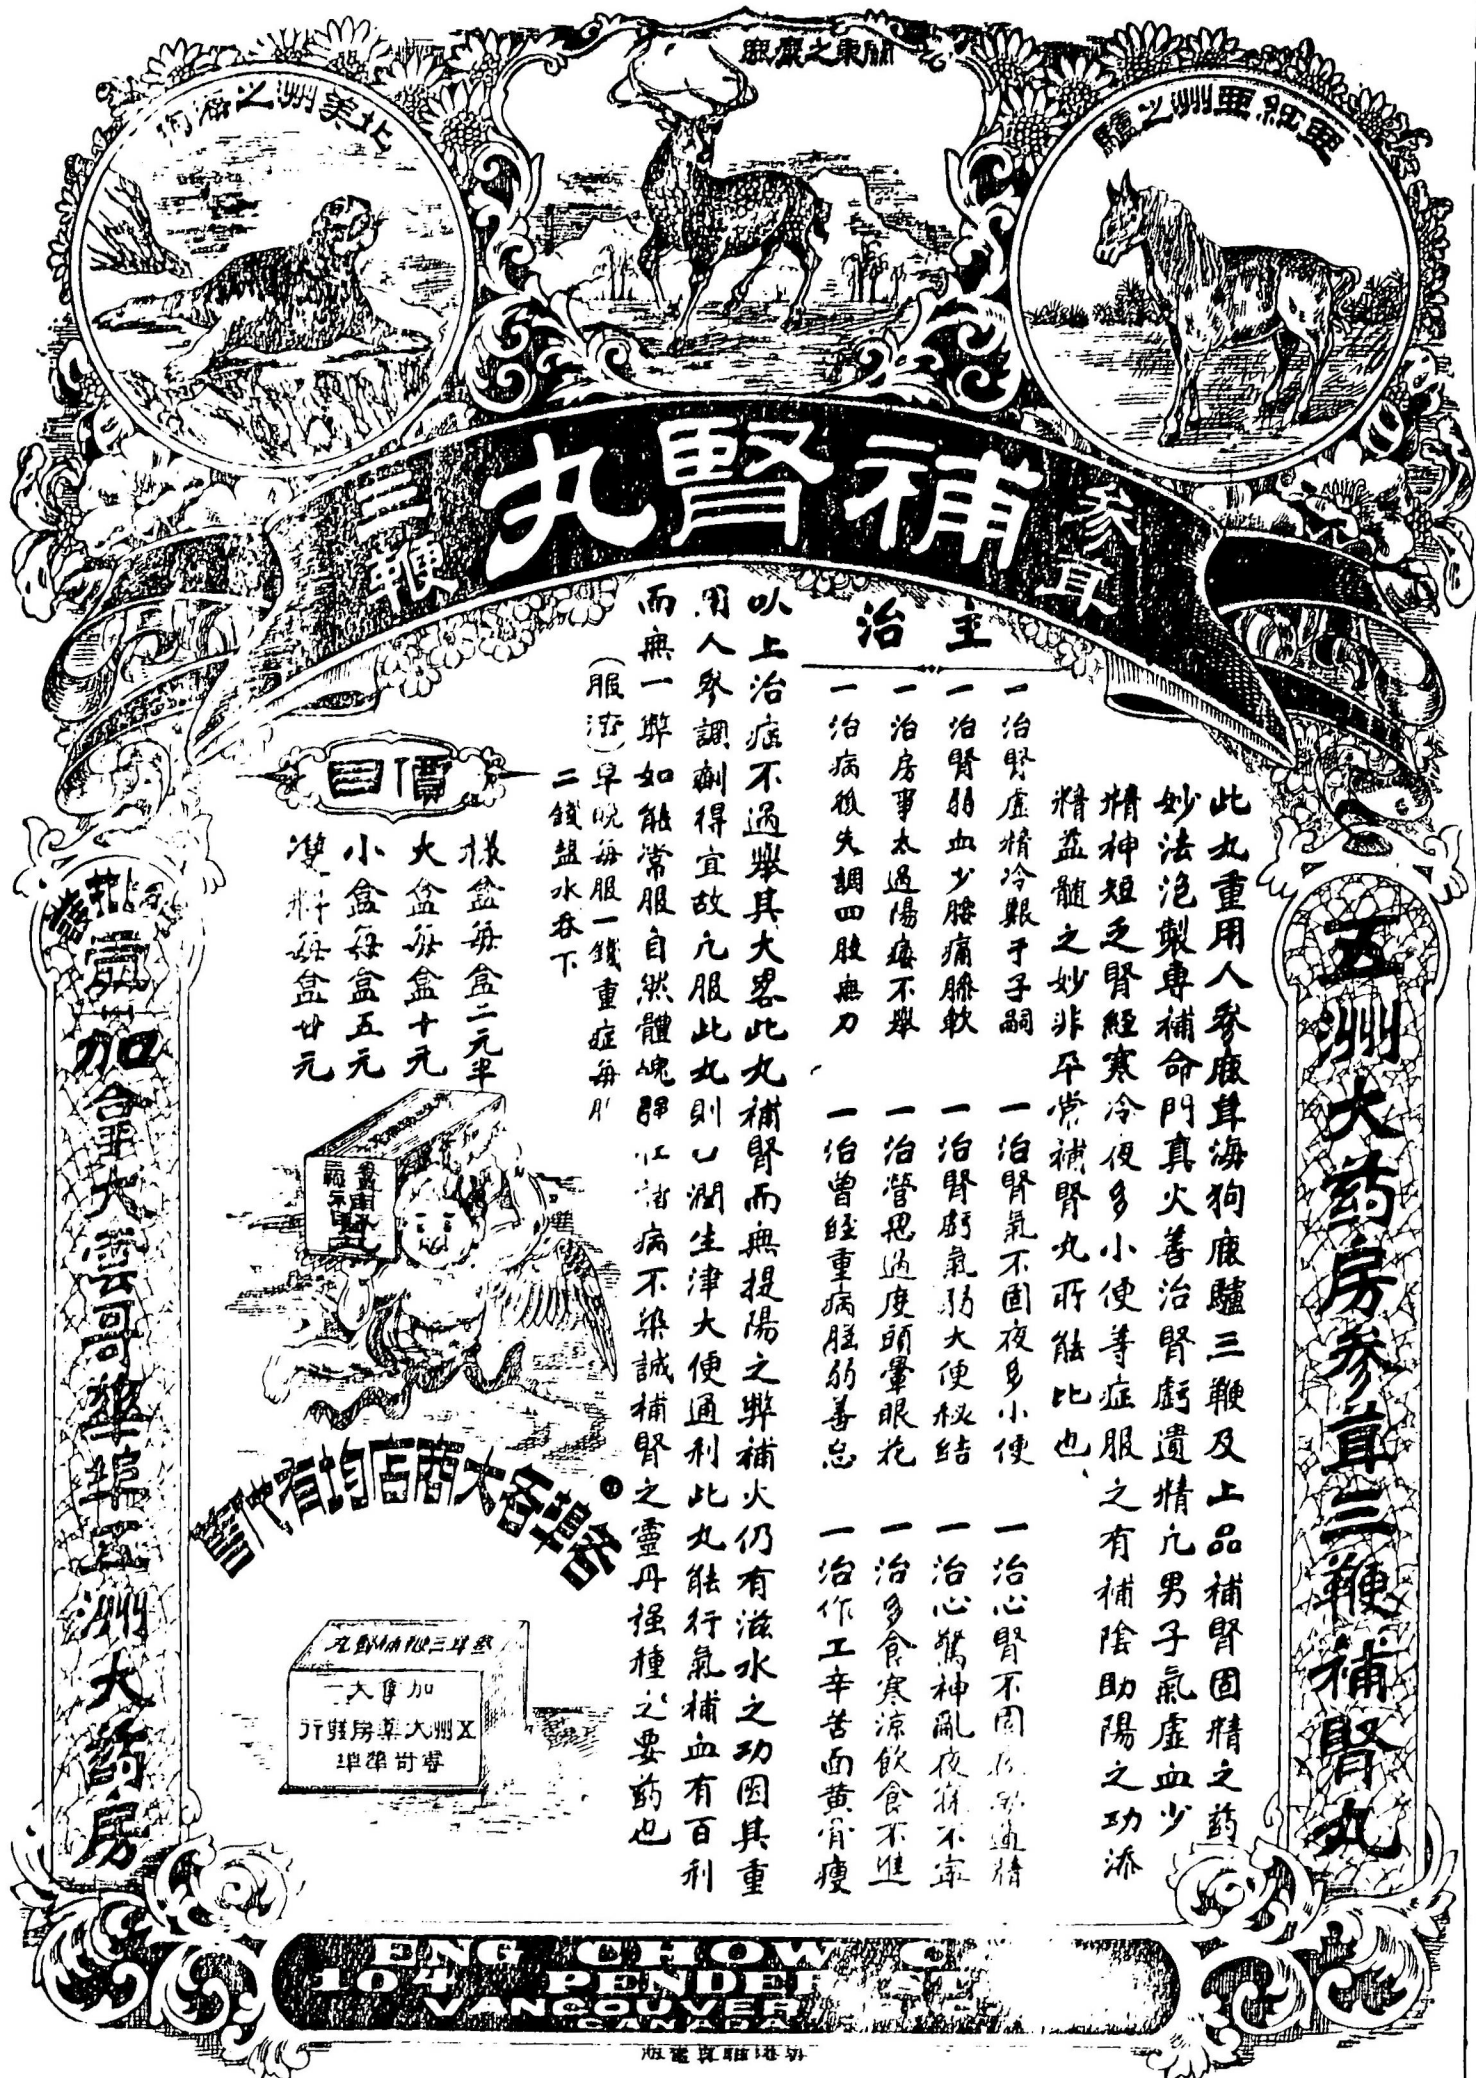 關東之麋鹿
亞細亞洲之驢
北美州之海狗
參茸
補腎丸
三鞭
五洲大药房參茸三鞭補腎丸
此丸重用人參鹿茸海狗鹿驢三鞭及上品補腎固精之药
妙法泡製專補命門真火善治腎虧遺精凢男子氣虛血少
精神短乏腎經寒冷夜多小便等症服之有補陰助陽之功添
精益髓之妙非平常補腎丸所能比也
主治
一治腎虛精冷艱于子嗣
一治腎氣不固夜多小便
一治心腎不固
一治腎弱血少腰痛脚軟
一治腎虧氣弱大便秘結
一治心驚神亂夜寐不寧
一治房事太過陽痿不舉
一治營思過度頭暈眼花
一治多食寒涼飲食不進
一治病後失調四肢無力
一治曾經重病胆弱善忘
一治作工辛苦面黄骨瘦
以上治症不過舉其大畧此丸補腎而無提陽之弊補火仍有滋水之功因其重
用人參調劑得宜故凢服此丸則心潤生津大便通利此丸能行氣補血有百利
而無一弊如能常服自然體魄 病不染誠補腎之靈丹强種之要药也
(服法)早晚每服一錢重症每
二錢盐水吞下
價目
樣盒每盒二元半
大盒每盒十元
小盒每盒五元
雙料每盒廿元
各埠各大商店均有代售
參茸三鞭補腎丸
加拿大
五州大葯房發行
雲哥華埠
加拿大雲哥華埠五洲大葯房
ENG CHOW
104 PENDER ST
VANCOUVER B.C.
CANADA